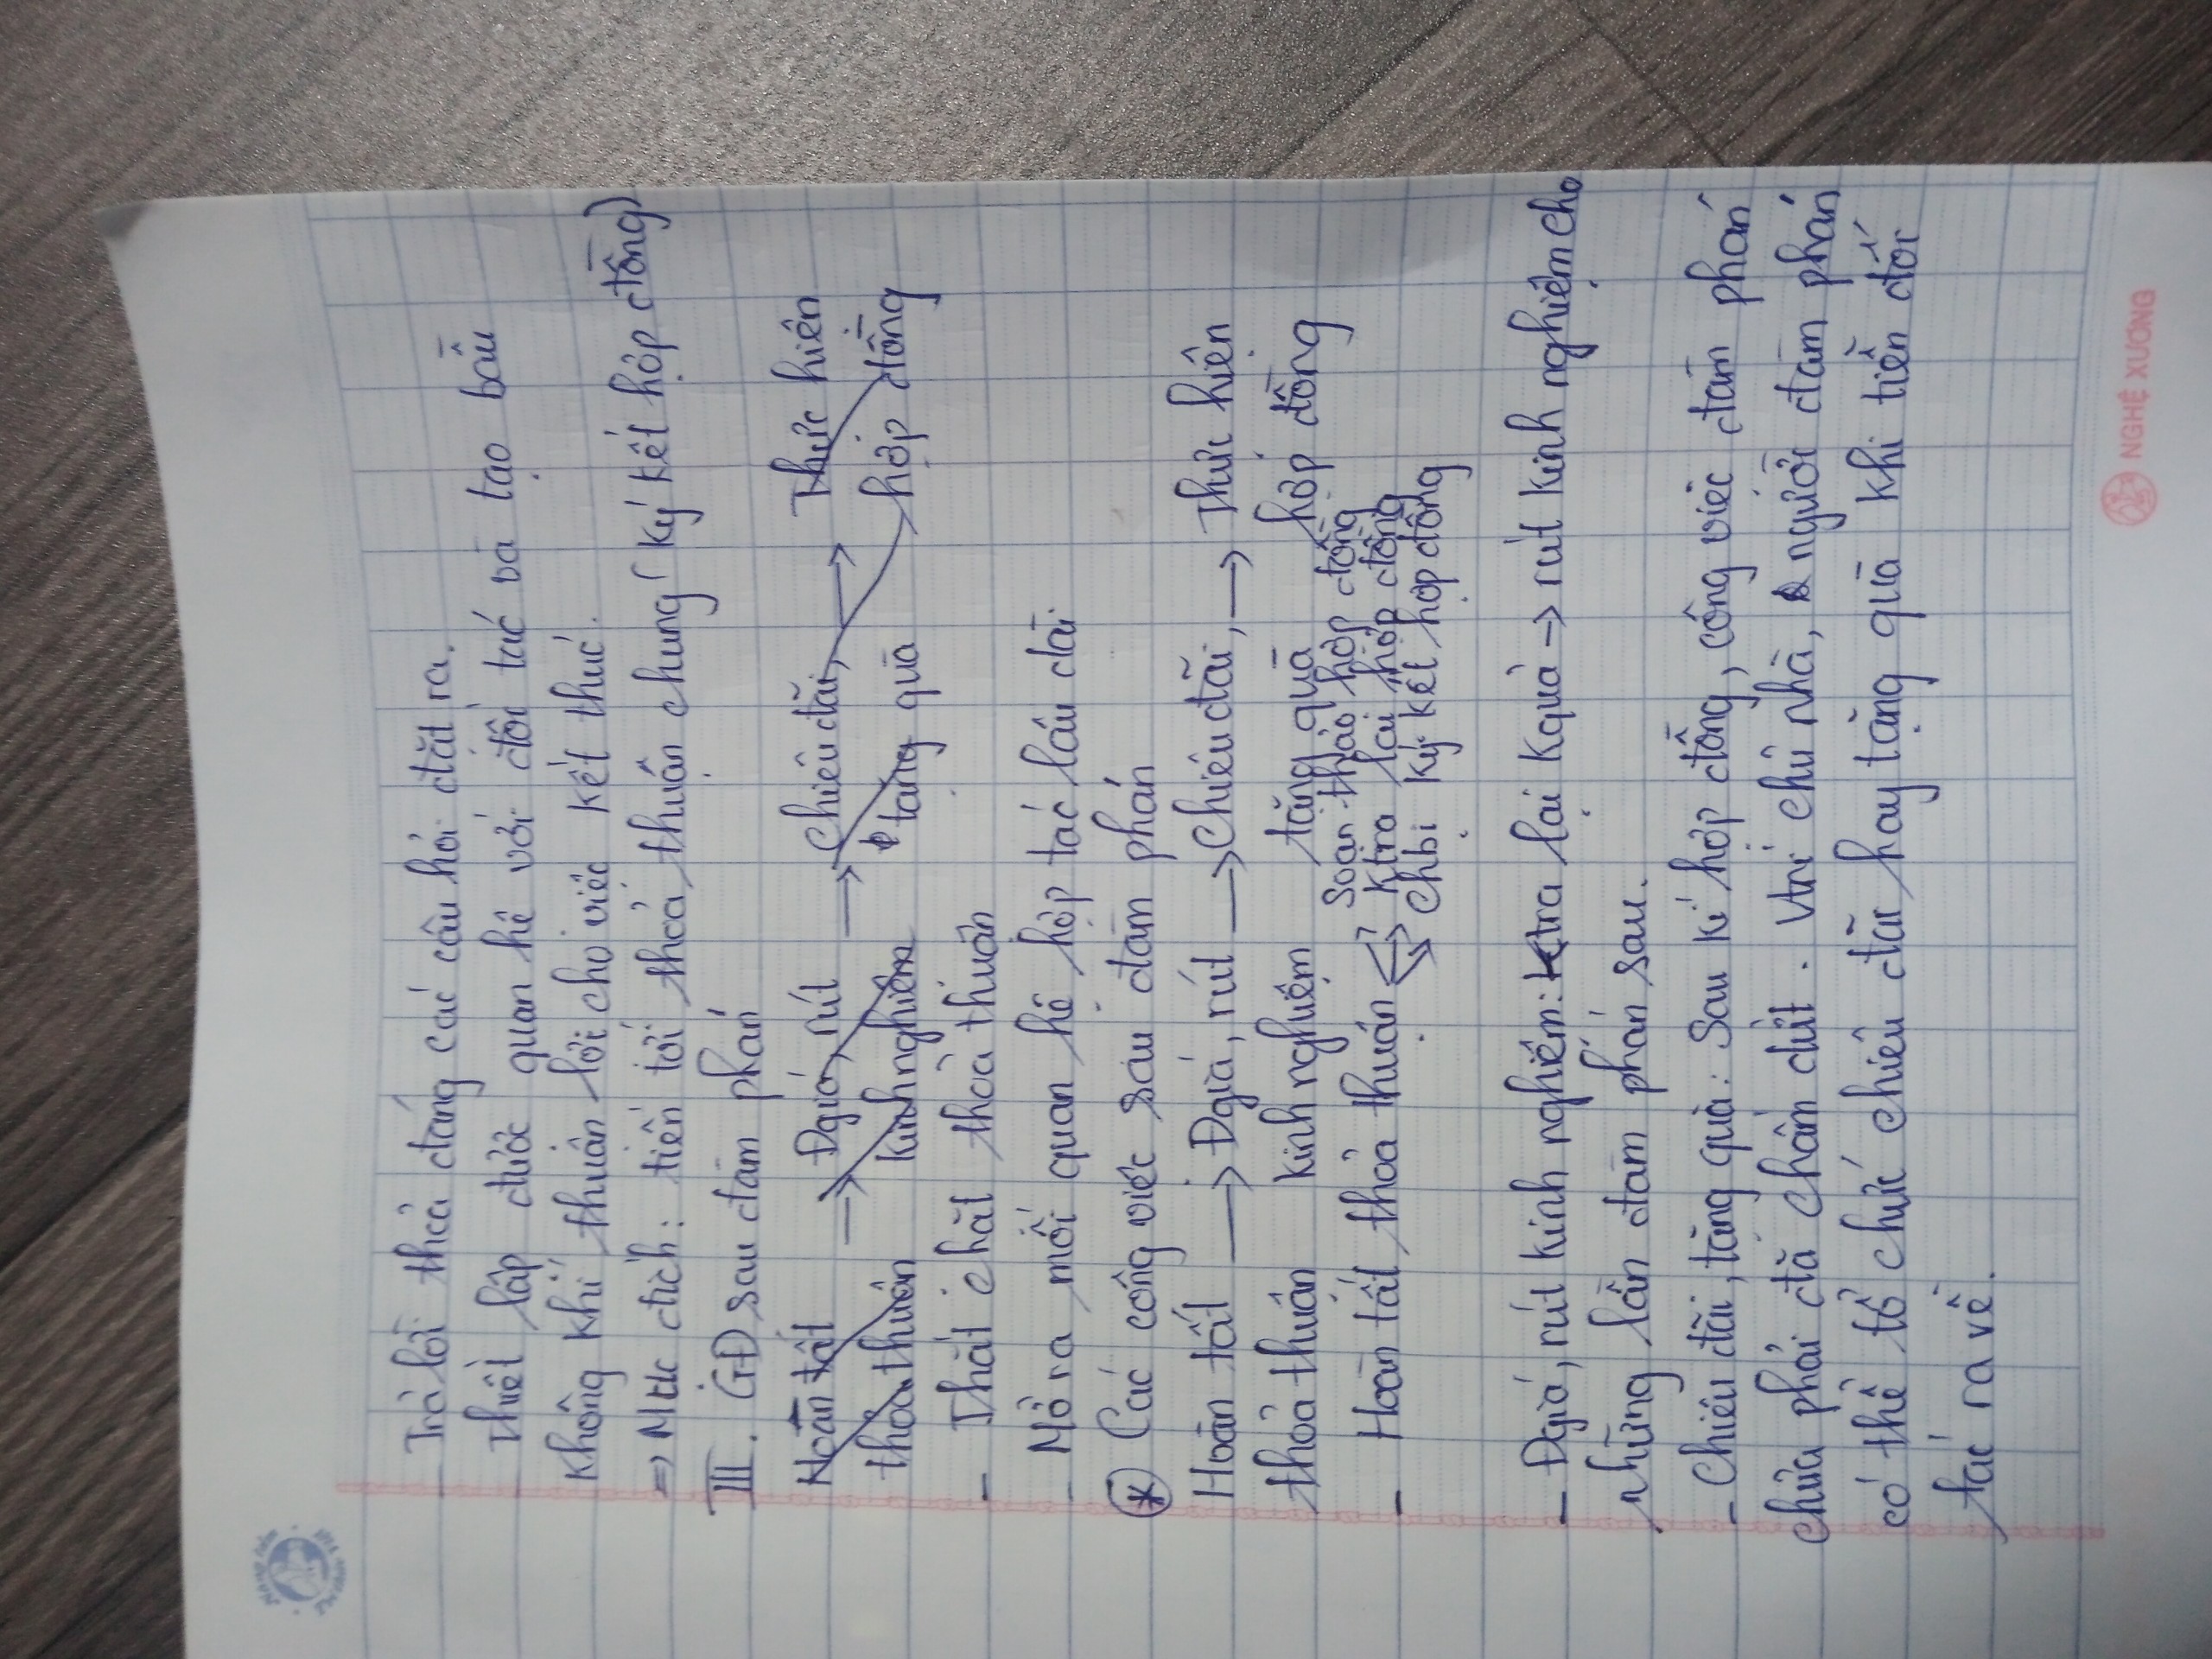 - Trả lời thỏa đáng các câu hỏi đặt ra.
- Thiết lập được quan hệ với đối tác và tạo bầu
không khí thuận lợi cho việc kết thúc.
=> Mục đích: tiến tới thoả thuận chung (ký kết hợp đồng)
III. GĐ sau đàm phán
Hoàn tất → Đgiá, rút → Chiêu đãi, → Thực hiện
thỏa thuận kinh nghiệm tặng quà hợp đồng
- Thắt chặt thỏa thuận
- Mở ra mối quan hệ hợp tác lâu dài
* Các công việc sau đàm phán
Hoàn tất → Đgiá, rút → Chiêu đãi, → Thực hiện
thỏa thuận kinh nghiệm tặng quà hợp đồng
Soạn thảo hợp đồng
- Hoàn tất thỏa thuận <=> Ktra lại hợp đồng
Chbị ký kết hợp đồng
- Đgiá, rút kinh nghiệm: Ktra lại Kquả → rút kinh nghiệm cho
những lần đàm phán sau.
- Chiêu đãi, tặng quà: Sau kí hợp đồng, công việc đàm phán
chưa phải đã chấm dứt. Vtrí chủ nhà, người đàm phán
có thể tổ chức chiêu đãi hay tặng quà khi tiễn đối
tác ra về.
NGHỆ XƯƠNG